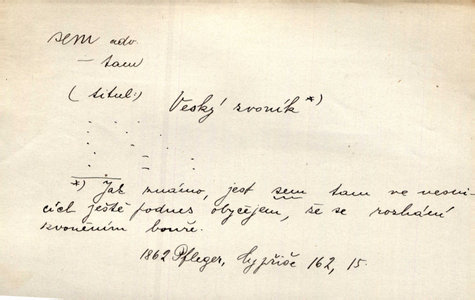 sem adv.
– tam
(titul:)
Veský zvoník *)
*) Jak známo, jest sem tam ve vesni-
cích ještě podnes obyčejem, že se rozhání
zvoněním bouře.
1862 Pfleger, Cypřiše 162, 15.